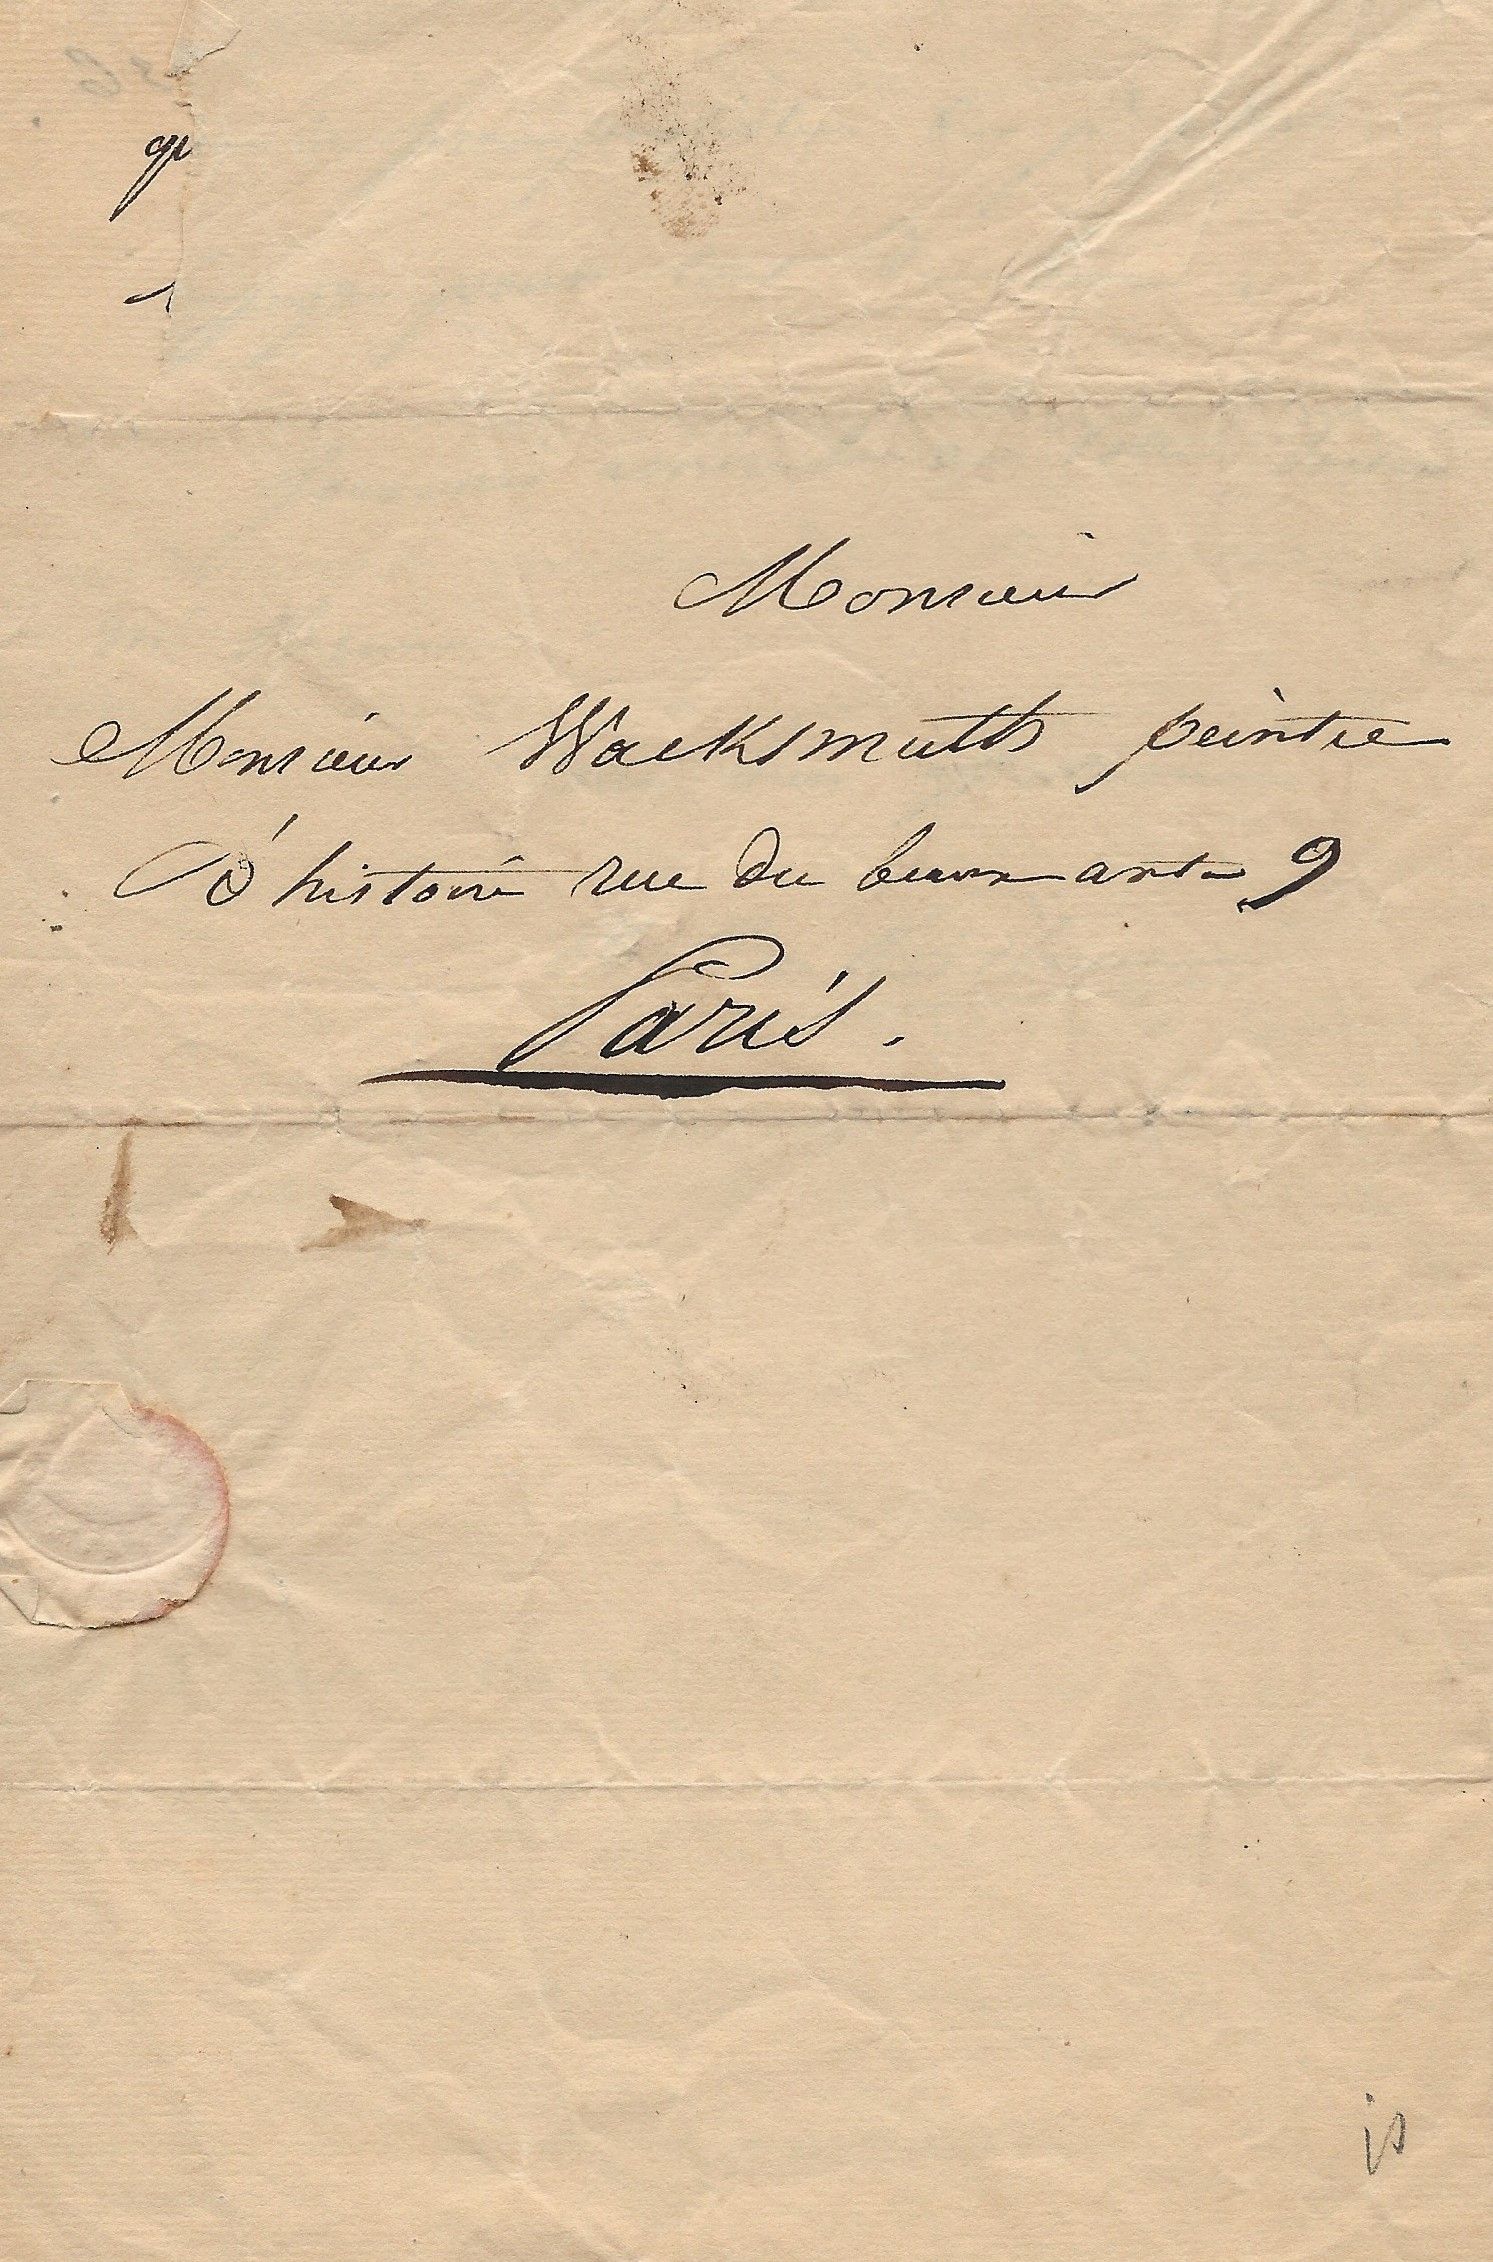 qu
Monsieur
Monsieur Wacksmuth peintre
d'histoire rue du beaux arts 9
Paris.